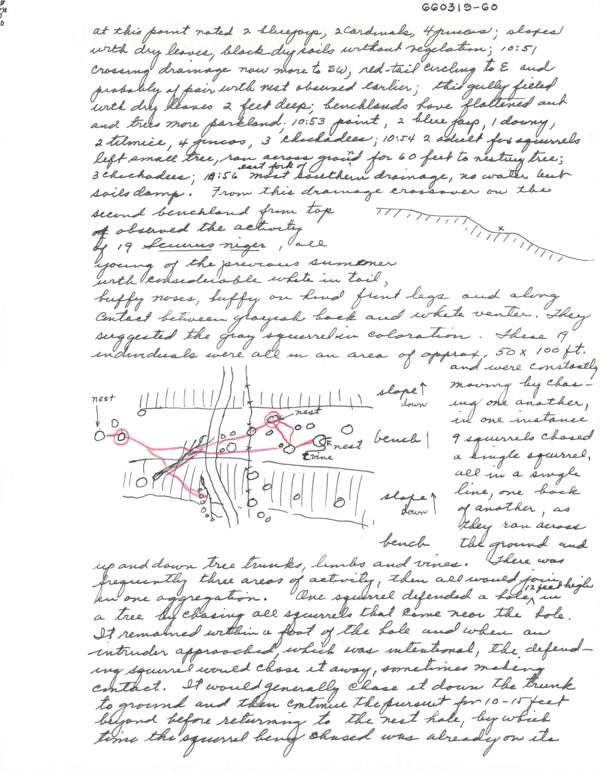 GGO319-60
at this point noted 2 bluejays, 2 cardinals, 4 juncos; slopes
with dry leaves, black dry soils without vegetation; 10:51
crossing drainage now more to SW, red-tail circling to E and
probably of pair with nest observed earlier; this gully filled
with dry leaves 2 feet deep; benchlands have flattened out
and trees more parkland; 10:53 point, 2 blue jay, 1 downy,
2 titmice, 4 juncos, 3 chickadees; 10:54 2 adult fox squirrels
left small tree, ran across ground for 60 feet to nesting tree;
3 chickadees; 10:56 east fork of most southern drainage, no water but
soils damp. From this drainage crossover on the
second benchland from top
observed the activity
of 19 Sciurus niger, all
young of the previous summer
with considerable white in tail,
buffy noses, buffy on hind front legs and along
contact between grayish back and white venter. They
suggested the gray squirrel in coloration. These 19
individuals were all in an area of approx. 50 x 100 ft.
and were constantly
moving by chas-
ing one another,
in one instance
9 squirrels chased
a single squirrel,
all in a single
line, one back
of another, as
they ran across
the ground and
nest
nest
nest
vine
slope down
bench
slope down
bench
up and down tree trunks, limbs and vines. There was
frequently three areas of activity, then all would join
in one aggregation. One squirrel defended a hole, 12 feet high in
a tree by chasing all squirrels that came near the hole.
It remained within a foot of the hole and when an
intruder approached, which was intentional, the defend-
ing squirrel would chase it away, sometimes making
contact. It would generally chase it down the trunk
to ground and then continue the pursuit for 10-15 feet
beyond before returning to the nest hole, by which
time the squirrel being chased was already on its